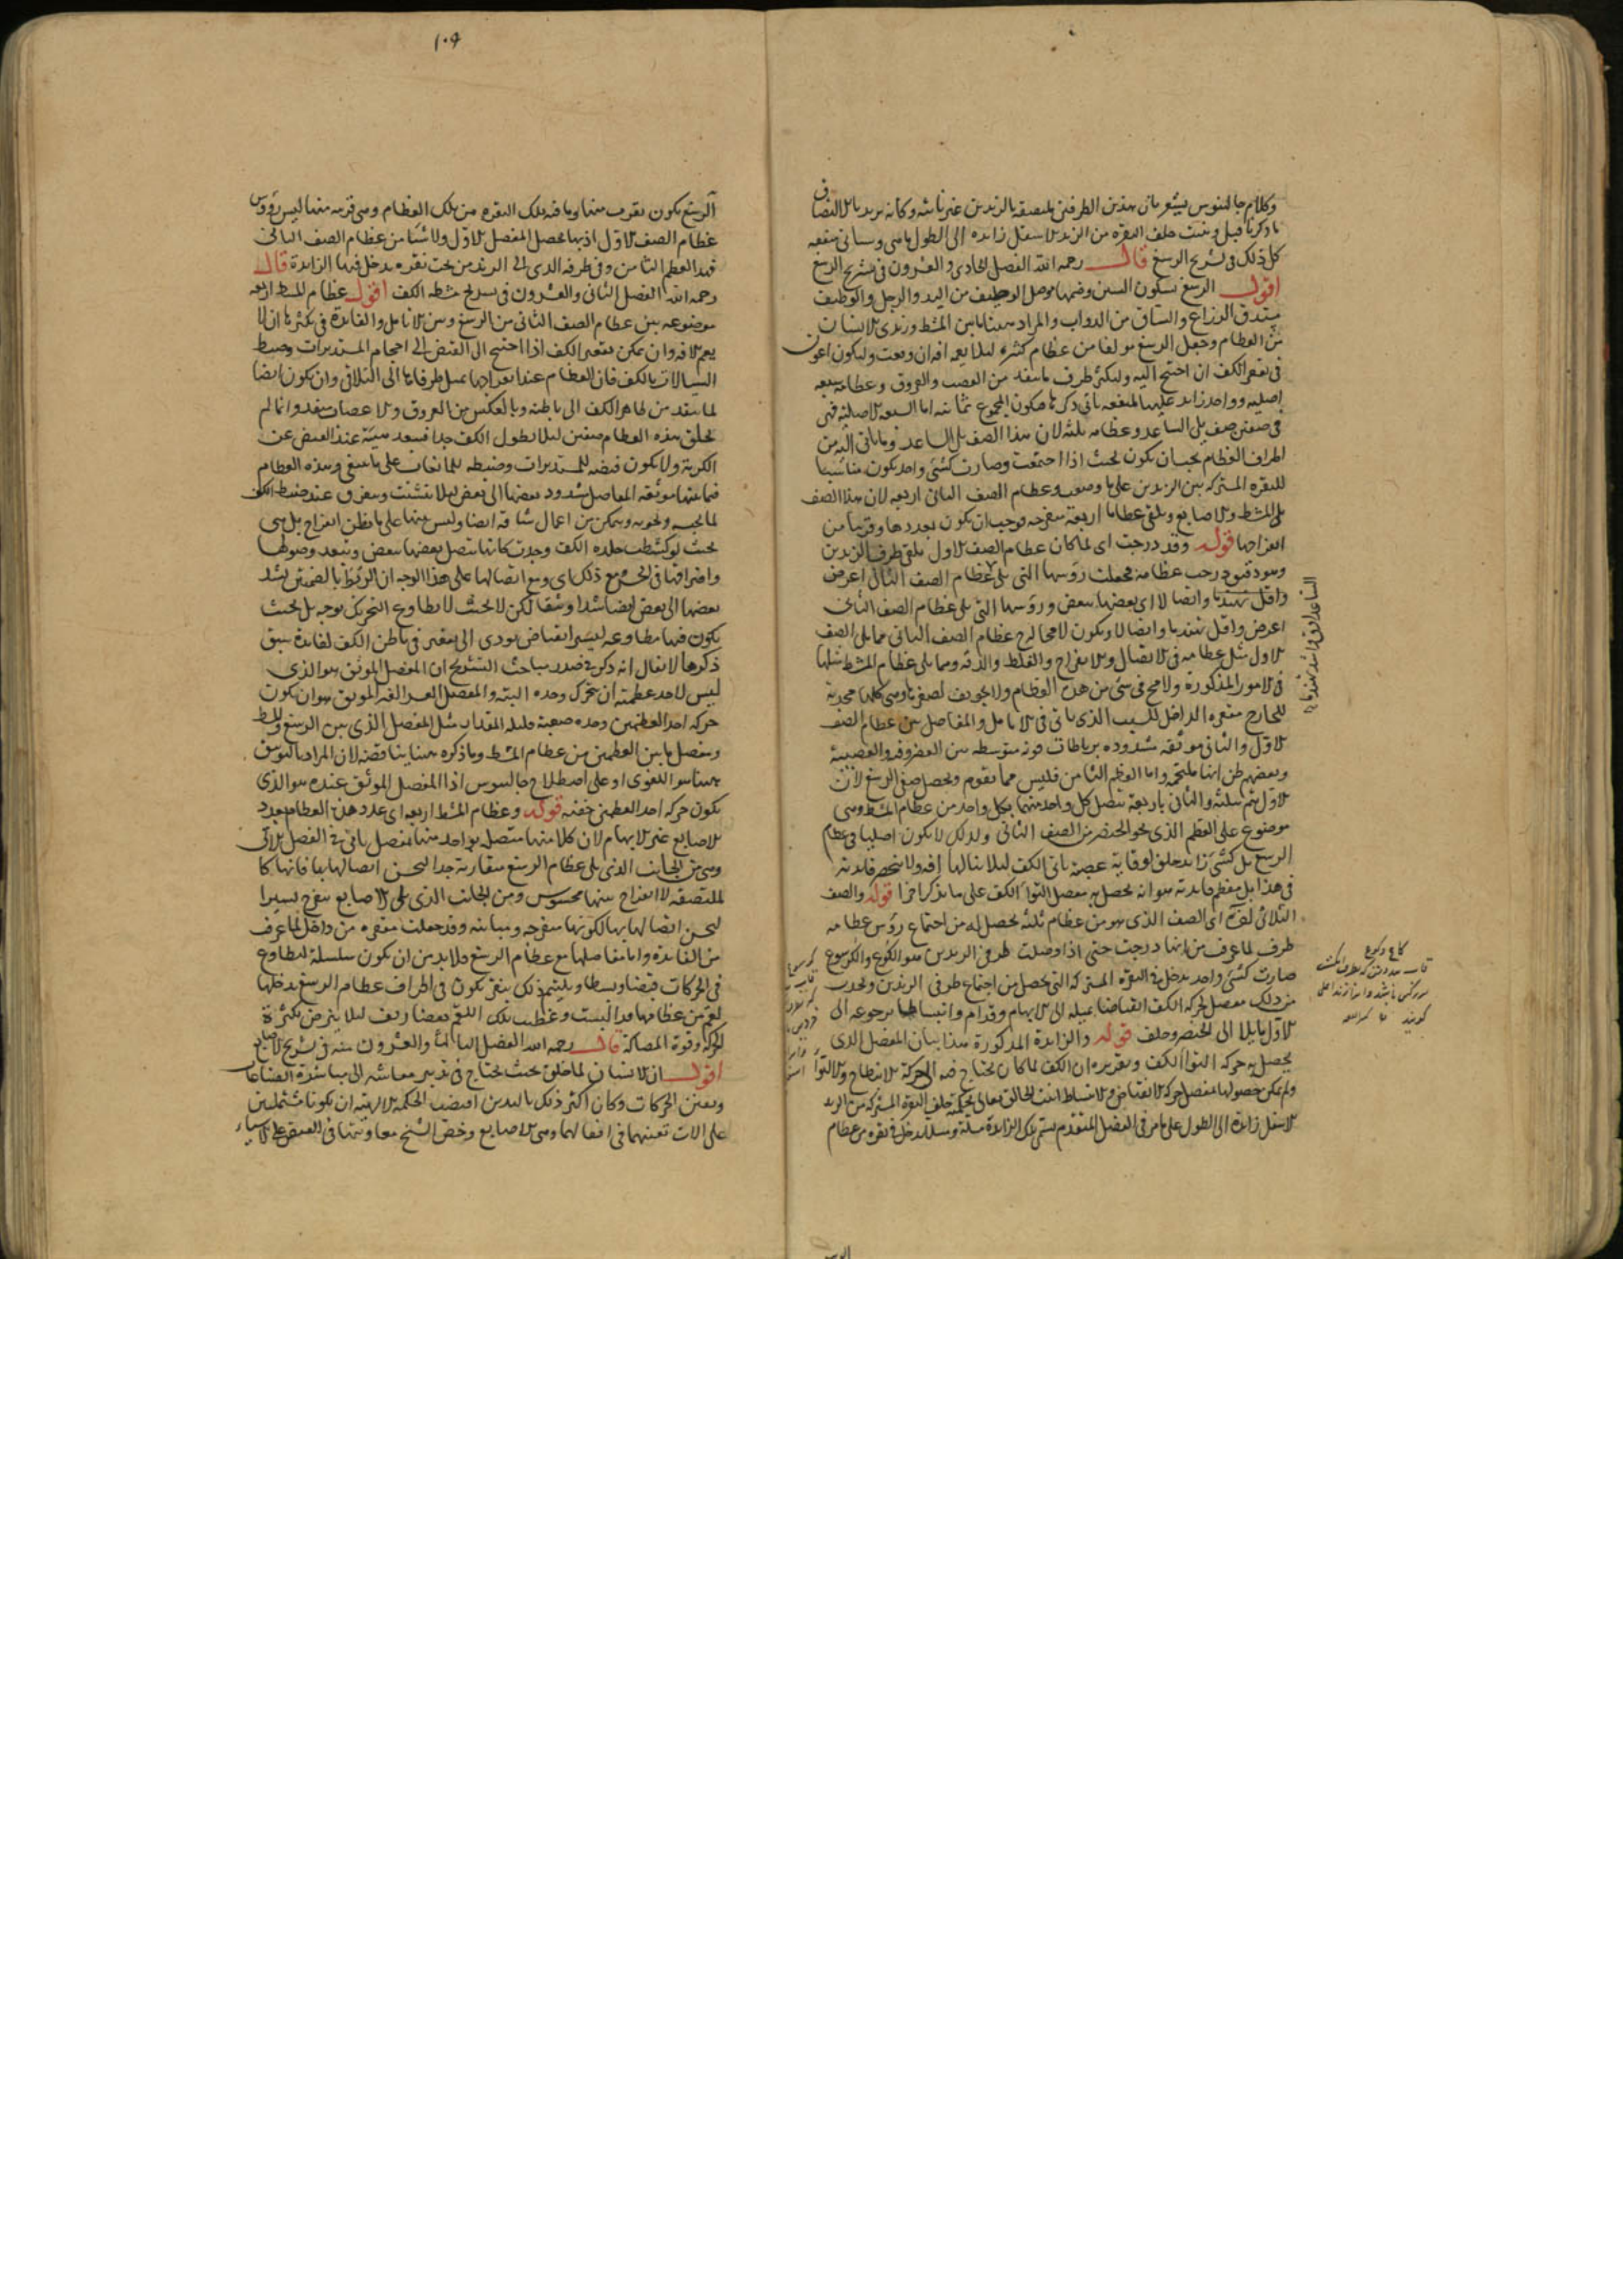 وكلام جالينوس يشعر بان هذين الطرفين ملتصقة بالزندين غير ناشه وكانه يريد بالالتصاق
ما ذكرنا قبل وبنيت خلف النقرة من الزند الاسفل زايدة الى الطول ماهى وسياتى منفعه
كل ذلك فى تشريح الرسغ قال رحمه الله الفصل الحادى والعشرون فى تشريح الرسغ
اقول الرسغ بسكون السين وضمها موصل الوظيف من اليد والرجل والوظيف
مستدق الذراع والساق من الدواب والمراد هنا ما بين المشط وزندى الانسان
من العظام وجعل الرسغ مولفا من عظام كثيرة ليلا يعمه افة ان وقعت وليكون اعون
فى تقعر الكف ان احتيج اليه وليكثر طرف ما ينفذ من العصب والعروق وعظامه سبعه
اصلية وواحد زايد عليها لمنفعه ياتى ذكرها فيكون المجموع ثمانية اما السبعه الاصلية فهى
فى صفين صف يلى الساعد وعظامه ثلثة لان هذا الصف يلى الساعد وما ياتى اليه من
اطراف العظام يجب ان يكون بحيث اذا اجتمعت وصارت كشئ واحد يكون مناسبا
للنقرة المشتركه بين الزندين على ما وصف وعظام الصف الثانى اربعه لان هذا الصف
يلى المشط والاصابع ويلقى عظاما اربعة منفرجه فوجب ان يكون بعددها وقريبا من
انفراجها قوله وقد درجت اى لما كان عظام الصف الاول يلقى طرف الزندين
وهو دقيق درجت عظامه فجعلت رؤسها التى تلى عظام الصف الثانى اعرض
واقل تهندما واتصالا اى بعضها ببعض ورؤسها التى تلى عظام الصف الثانى
اعرض واقل تهندما واتصالا ويكون لامحاله عظام الصف الثانى مما يلى الصف
الاول مثل عظامه فى الاتصال والانفراج والغلظ والدقه ومما يلى عظام المشط مثلها
فى الامور المذكورة ولا مخ فى شئ من هذه العظام ولا تجويف لصغرها وهى كلها محدبة
للخارج مقعره الداخل للسبب الذى ياتى فى الانامل والمفاصل بين عظام الصف
الاول والثانى موثقه مشدوده برباطات قوية متوسطه بين الغضروفية والعصبية
وبعضهم ظن انها ملتحمة واما العظم الثامن فليس مما يقوم ويحصل صفى الرسغ لان
الاول يتم بثلثة والثانى باربعة يتصل كل واحد منها بكل واحد من عظام المشط وهى
موضوع على العظم الذى نحو الخنصر من الصف الثانى ولذلك لا يكون اصليا فى عظام
الرسغ بل كشئ زايد خلق لوقاية عصبة تاتى الكف ليلا ينالها افه ولا ينحصر فايدته
فى هذا بل معظم فايدته هو انه يحصل به مفصل التواء الكف على ما يذكر اخرا قوله والصف
الثلاثى لقم اى الصف الذى هو من عظام ثلثة يحصل له من اجتماع رؤس عظامه
طرف لما عرف من انها درجت حتى اذا وصلت طرفى الزندين هو الكوع والكرسوع
صارت كشئ واحد يدخل فى النقره المشتركه التى تحصل من اجتماع طرفى الزندين ويحدث
من ذلك مفصل لحركة الكف انقباضا بميله الى الابهام وقدام وانبساطا برجوعه الى
الاول مايلا الى الخنصر وخلف قوله والزايدة المذكورة هذا بيان المفصل الذى
يحصل به حركه التواء الكف وتقريره ان الكف لما كان يحتاج فيه الى حركة الانبطاح والالتواء
ولم يمكن حصولها بمفصل حركة الانقباض والانبساط انبت الخالق تعالى بحكمته خلف النقرة المشتركه من الزند
الاسفل زايدة الى الطول على ما مر فى الفصل المتقدم يسمى تلك الزايدة مسلة ومسلا يدخل فى نقره من عظام
الساعد ارق واشد تهندما
١٠٩
الرسغ يكون بقرب منها وما فيه تلك النقره من تلك العظام وهى قريبه منها ليس رؤوس
عظام الصف الاول اذ بها يحصل المفصل الاول ولا شيئا من عظام الصف الثانى
فهذا العظم الثامن وفى طرفه الذى الى الزند من تحت نقره يدخل فيها الزايدة قال
رحمه الله الفصل الثانى والعشرون فى تشريح مشط الكف اقول عظام المشط اربعه
موضوعه بين عظام الصف الثانى من الرسغ وبين الانامل والفايدة فى تكثرها ان لا
يعم الافه وان يمكن تقعير الكف اذا احتيج الى القبض الى احجام المستديرات وضبط
السيالات بالكف فان العظام عند انفرادها يميل طرفاها الى التلاقى وان يكون ايضا
لما ينفذ من ظاهر الكف الى باطنه وبالعكس من العروق والاعصاب منفذ وانما لم
يخلق هذه العظام صفين ليلا يطول الكف جدا فيبعد هيئته عند القبض عن
الكرية ولا يكون قبضه للمستديرات وضبطه للمائعات على ما ينبغى وهذه العظام
فيما بينها موثقه المفاصل مشدود بعضها الى بعض ليلا يتشتت ويتفرق عند ضبط الكف
لما يجبه ونحويه ويمكن من اعمال شاقة ايضا وليس بينها على ما يظن انفراج بل هى
بحيث لو كشطت جلده الكف وجدت كانها تتصل بعضها ببعض ويبعد وصولها
وافتراقها فى الحس ومع ذلك اى ومع اتصالها على هذا الوجه ان الربط بالضمتين يشد
بعضها الى بعض ايضا شدا وثيقا لكن لا بحيث لا يطاوع التحريك بوجه بل بحيث
يكون فيها مطاوعه ليسير انقباض يودى الى تقعير فى باطن الكف لفايدة سبق
ذكرها لا يقال انه ذكر فى صدر مباحث التشريح ان المفصل الموثق هو الذى
ليس لاحد عظميه ان يتحرك وحده البتة والمفصل العسر الغير الموثق هو ان يكون
حركه احد العظمين وحده صعبة قليلة المقدار مثل المفصل الذى بين الرسغ والمشط
ومفصل ما بين العظمين من عظام المشط وما ذكره هنا يناقضه لان المراد بالتوثيق
ههنا هو اللغوى او على اصطلاح جالينوس اذ المفصل الموثق عنده هو الذى
يكون حركه احد العظمين خفيه قوله وعظام المشط اربعه اى عدد هذه العظام بعدد
الاصابع غير الابهام لان كلا منها متصله بواحد منها بمفصل ياتى فى الفصل الاتى
وهى من الجانب الذى يلى عظام الرسغ متقاربة جدا ليحسن اتصالها بها فانها كا
لملتصقه لا انفراج بينها محسوس ومن الجانب الذى يلى الاصابع منفرج يسيرا
ليحسن اتصالها بها لكونها منفرجه ومباينه وقد جعلت مقعره من داخل لما عرف
من الفايدة واما مفاصلها مع عظام الرسغ فلابد من ان يكون سلسلة ليطاوع
فى الحركات قبضا وبسطا ويلتئم ذلك بنقر يكون فى اطراف عظام الرسغ يدخلها
لقم من عظامها قد البست وغطيت تلك اللقم بغضاريف ليلا ينرض بكثرة
الحركة وقوة المصاكة قال رحمه الله الفصل الثالث والعشرون منه فى تشريح الاصابع
اقول ان الانسان لما خلق بحيث يحتاج فى تدبير معاشه الى مباشرة الصناعات
وتفنن الحركات وكان اكثر ذلك باليدين اقتضت الحكمة الالهية ان يكونا مشتملتين
على الات تعينهما فى افعالهما وهى الاصابع وخص الشيخ معاونتها فى القبض على الاشياء